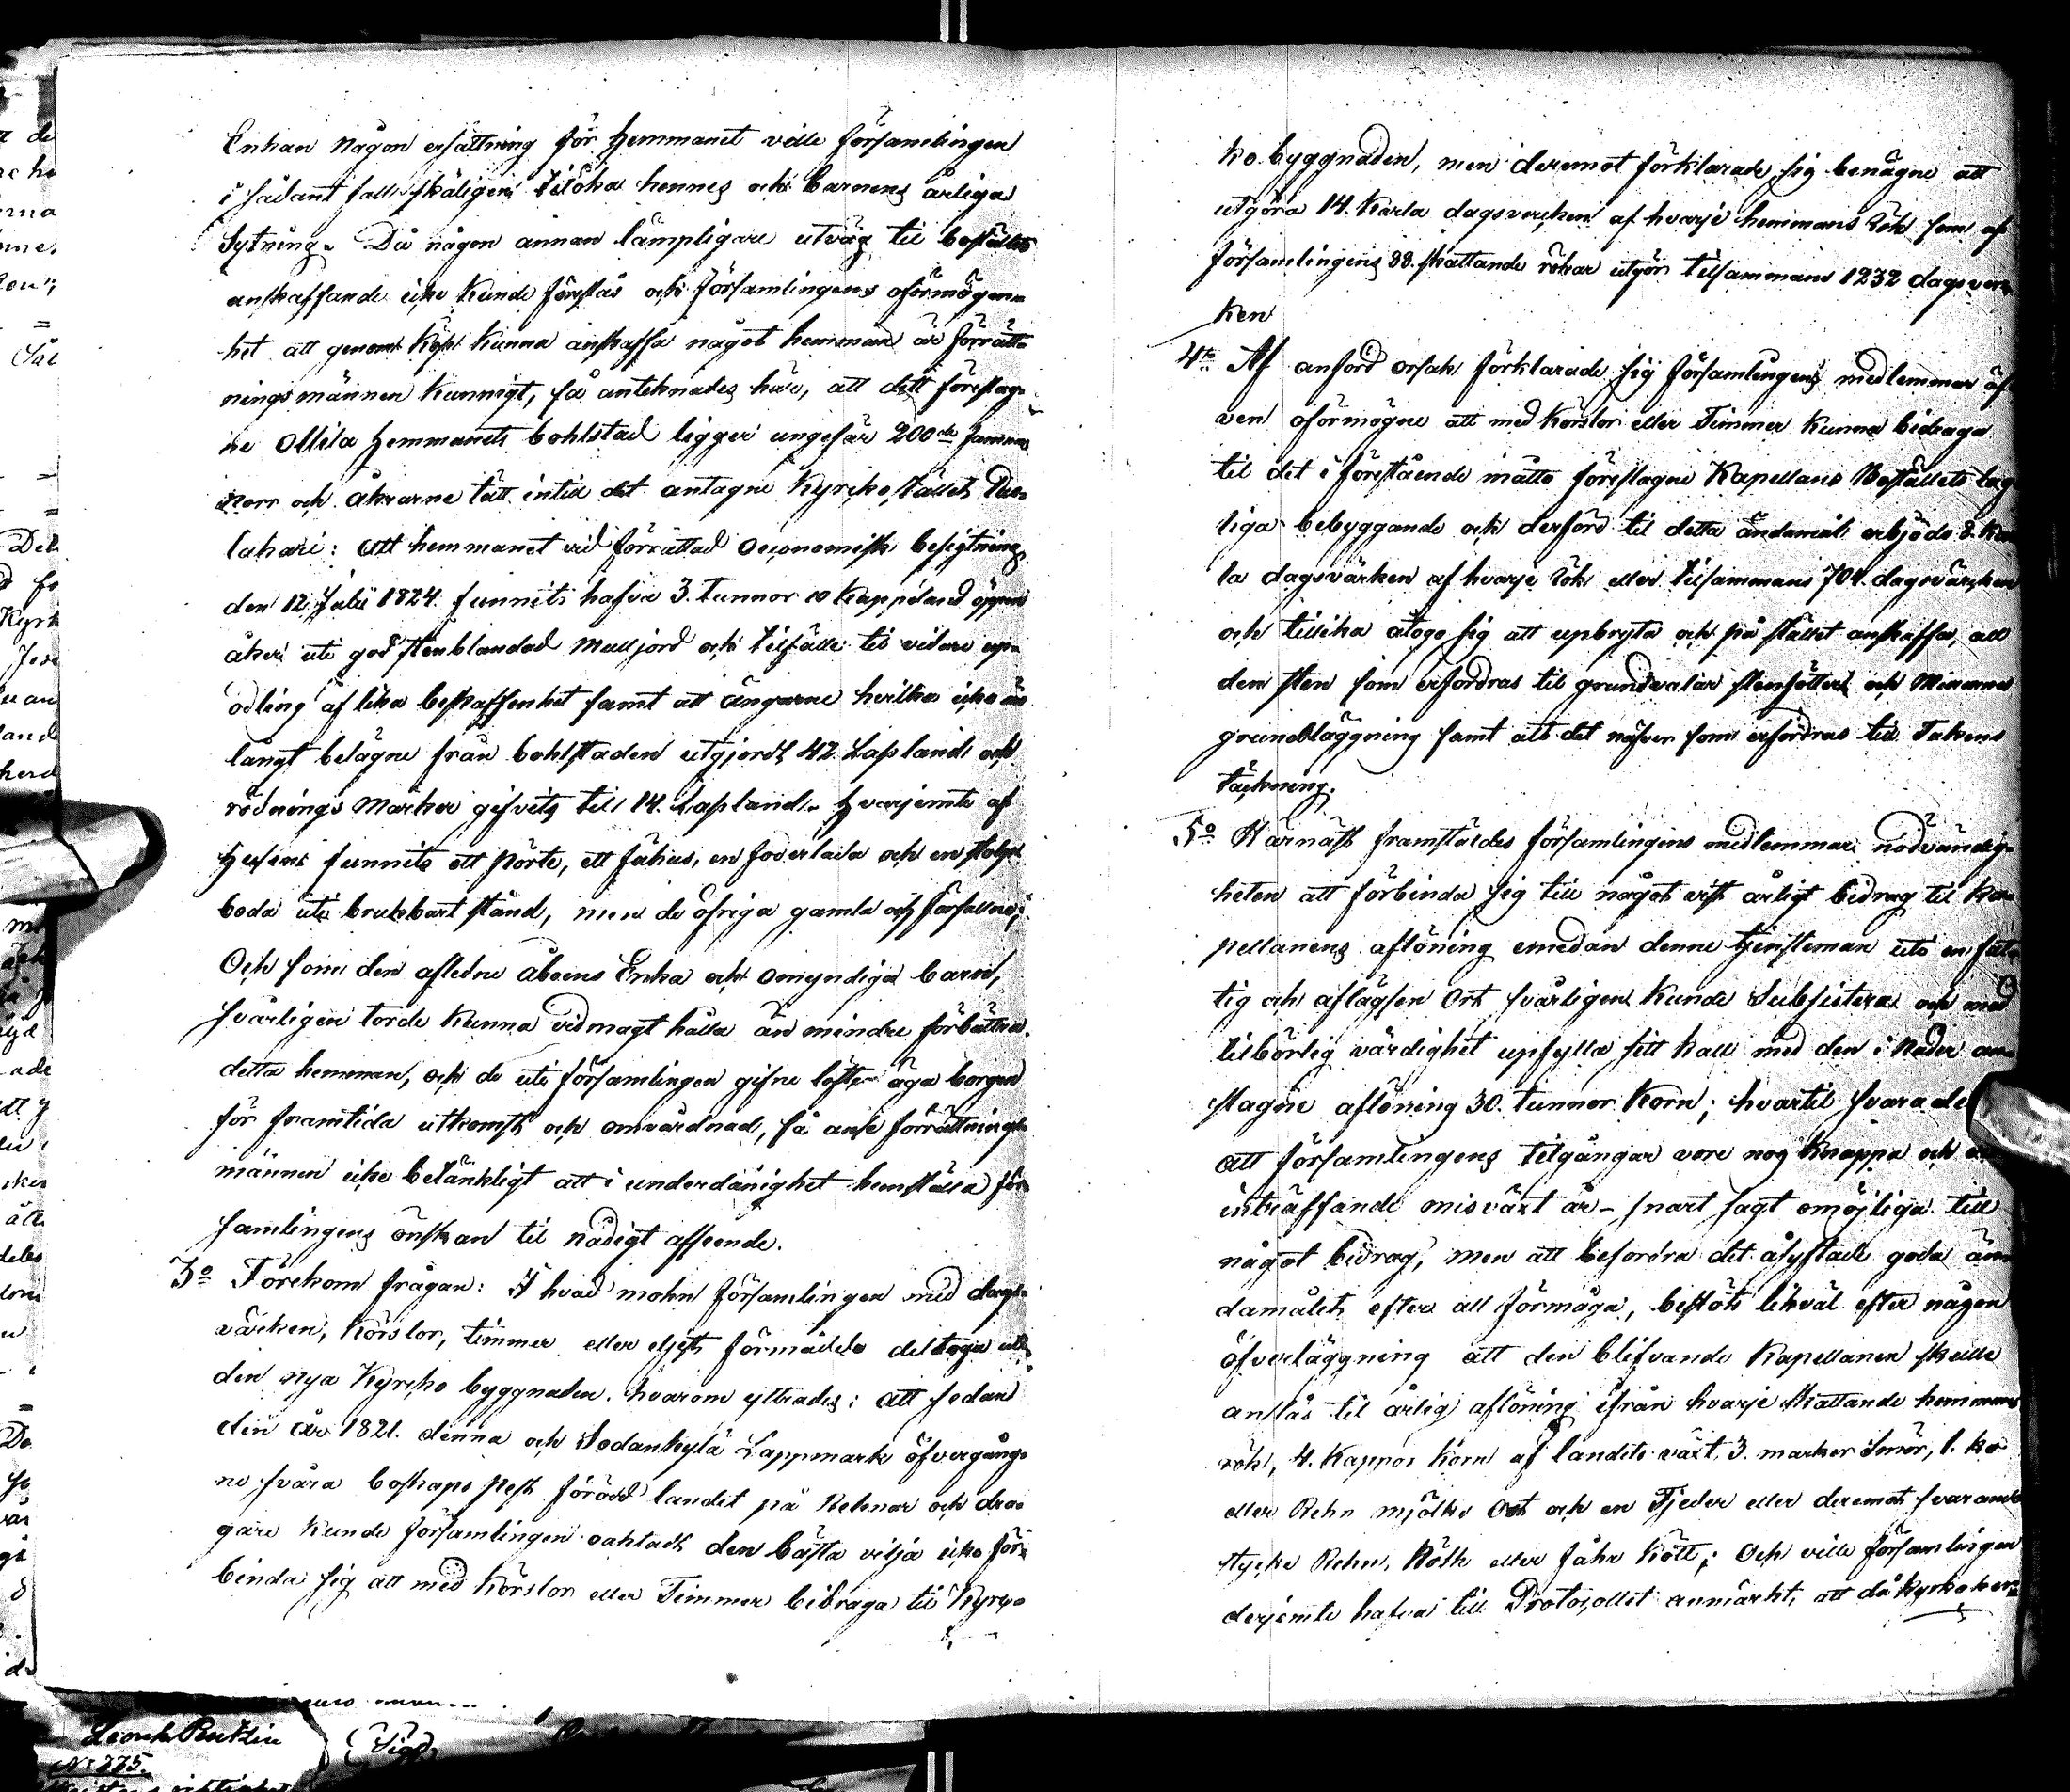 Enkan någon ersättning för Hemmanet ville församlingen
i sådant fall skäligen tilöka hennes och barnens årliga
Sytning. Då någon annan lämpligare utväg til boställets
anskaffande icke kunde föreslås och församlingens oförmögen-
het att genom köp kunna anskaffa något hemman är förrätt-
nings männen kunnigt, så antecknades här, att dett föreslag-
ne Ollila Hemmanets bohlstad ligger ungefär 200de famnar
norr och åkrarne tätt intill det antagne Kyrko stället
lahari: att hemmanet vid förrättad Oeconomisk besigtning
den 12. Julii 1824. funnits hafva 3. Tunnor 10 Kappeland öppen
åker uti god stenblandad mulljord och tilfälle til vidare up-
odling af lika beskaffenhet samt att ängarne hvilka icke äro
långt belägne från bohlstaden utgjordt 42. Lass land och
rödnings marker gifvits till 14. Lassland. Hvarjemte af
Husen funnits ett pörte, ett fähus, en foderlada och en stolpe
boda uti brukbart stånd, men de öfriga gamla och förfallne;
Och som den aflidne åboens Enka och omyndiga barn,
svårligen torde kunna vidmagt hålla än mindre förbättra
detta hemman, och de uti församlingen gifne löfte äga borgen
för framtida utkomst och omvårdnad, så anse förrättnings
männen icke betänkligt att i underdånighet hemställa för-
samlingens önskan til nådigt afseende.
3o Förekom frågan: I hvad mohn församlingen med dags-
värcken, körslor, timmer eller eljest förmådde deltaga uti
den nya Kyrcko byggnaden. hvarom yttrades: att sedan
den år 1821. denna och Sodankylä Lappmark öfvergång-
ne svåra boskaps pest förödt landet på Rehnar och dra-
gare kunde församlingen oaktadt den bästa vilja icke för-
binda sig att med körslor eller Timmer bidraga til Kyrc-
ko byggnaden, men deremot förklarade sig benägne att
utgöra 14. Karla dagsvercken af hvarje hemmans rök som af
församlingens 88. skattande rökar utgör tilsammans 1232 dagsver-
ken
4to Af anförd orsak förklarade sig församlingens medlemmar äf-
ven oförmögne att med körslor eller Timmer kunna bidraga
til det i förestående måtto föreslagne Kapellans Boställets lag-
liga bebyggande och derförd til detta ändamål erbjöds 8. Kar-
la dagsvärken af hvarje rök eller tilsammans 704. dagsvärcken
och tillika åtogo sig att upbryta och på stället anskaffa, all
den sten som erfordras til grundvalar stenfötter och Murarnes
grundläggning samt all det näfver som erfordras till Takens
täckning.
5o Härnäst framstäldes församlingens medlemmar nödvändig-
heten att förbinda sig till något vist årligt bidrag til Ka-
pellanens aflöning emedan denne tjensteman uti en fat-
tig och aflägsen Ort svårligen kunde Subsistera och med
tilbörlig värdighet upfylla sitt kall med den i Nåder an-
slagne aflöning 30. tunnor Korn; hvartil svarades
att församlingens tilgångar vore nog knappa och
inträffande misväxt år - snart sagt omöjliga till
något bidrag, men att befordra det åsyftade goda än-
damålet efter all förmåga, beslöts likväl efter någon
öfverläggning att den blifvande Kapellanen skulle
anslås til årlig aflöning ifrån hvarje skattande hemmans
rök, 4. Kappor Korn af landets växt, 3. marker smör, 1. ko
eller Rehn mjölks Ost och en Tjeder eller deremot svarande
stycke Rehn, Nöth eller fåhr kött; Och ville församlingen
derjemte hafva till Protocollet anmärkt, att då kyrkoher-
Leonh Pentzin
No 225.